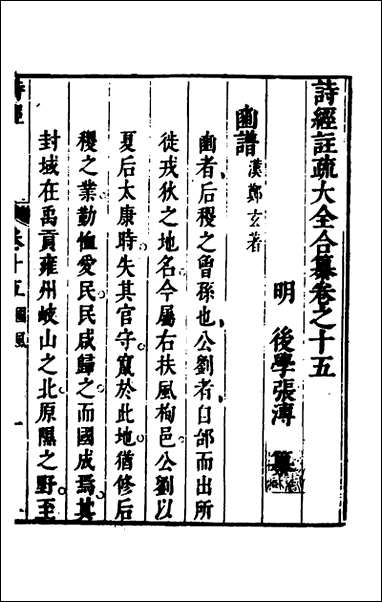 詩經註疏大全合纂卷之十五
明 後學張溥 纂
豳譜 漢鄭玄著
豳者后稷之曾孫也公劉者自邰而出所
徙戎狄之地名今屬右扶風栒邑公劉以
夏后太康時失其官守竄於此地猶修后
稷之業勤恤愛民民咸歸之而國成焉其
封域在禹貢雍州岐山之北原隰之野至
詩經
卷十五 國風 一